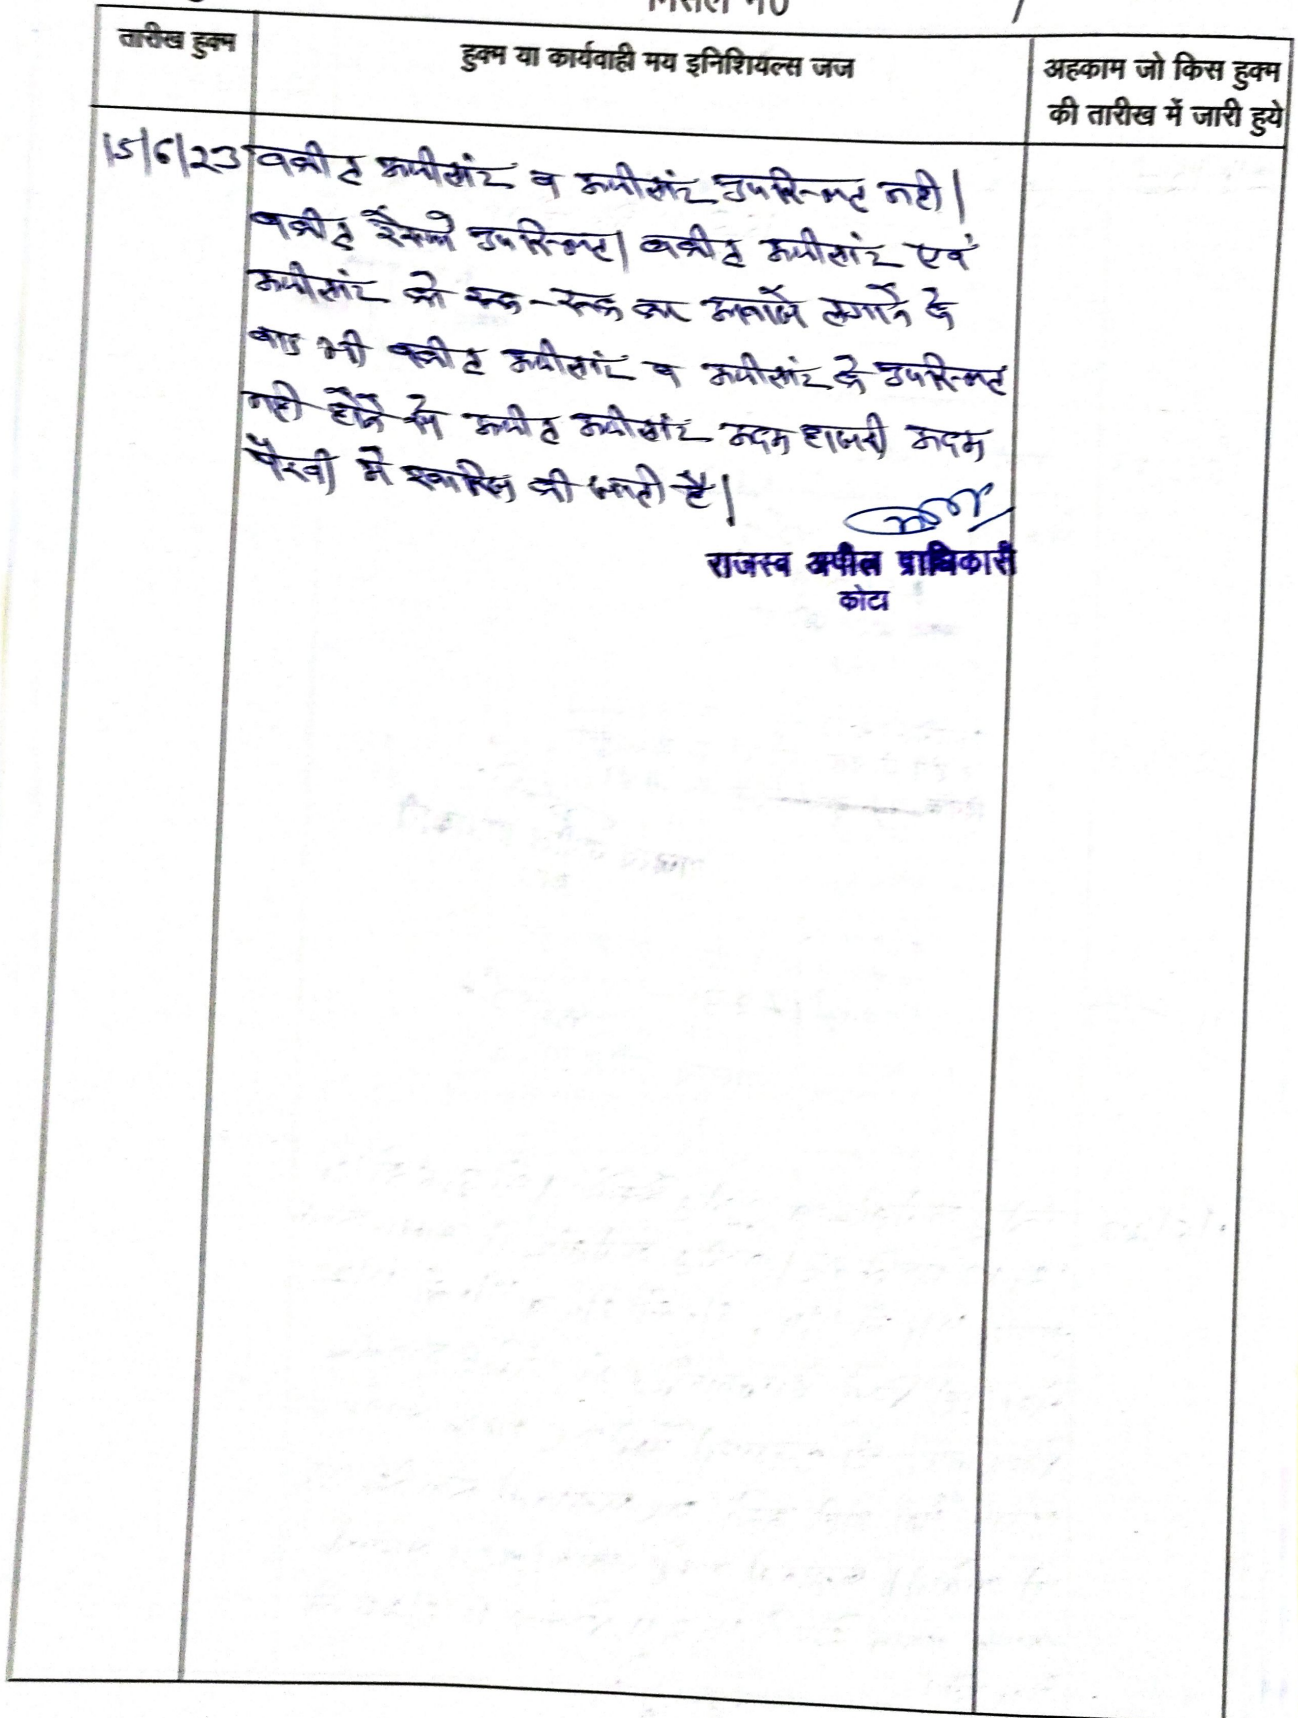 मिसल नं०
तारीख हुक्म
हुक्म या कार्यवाही मय इनिशियल्स जज
अहकाम जो किस हुक्म
की तारीख में जारी हुये
15/6/23 वकील अपीलांट व अपीलांट उपस्थित नही।
वकील रैस्पो उपस्थित। वकील अपीलांट एवं
अपीलांट को रूक-रूक कर आवाजें लगाने के
बाद भी वकील अपीलांट व अपीलांट के उपस्थित
नही होने से अपील अपीलांट अदम हाजरी अदम
पैरवी में खारिज की जाती है।
राजस्व अपील प्राधिकारी
कोटा